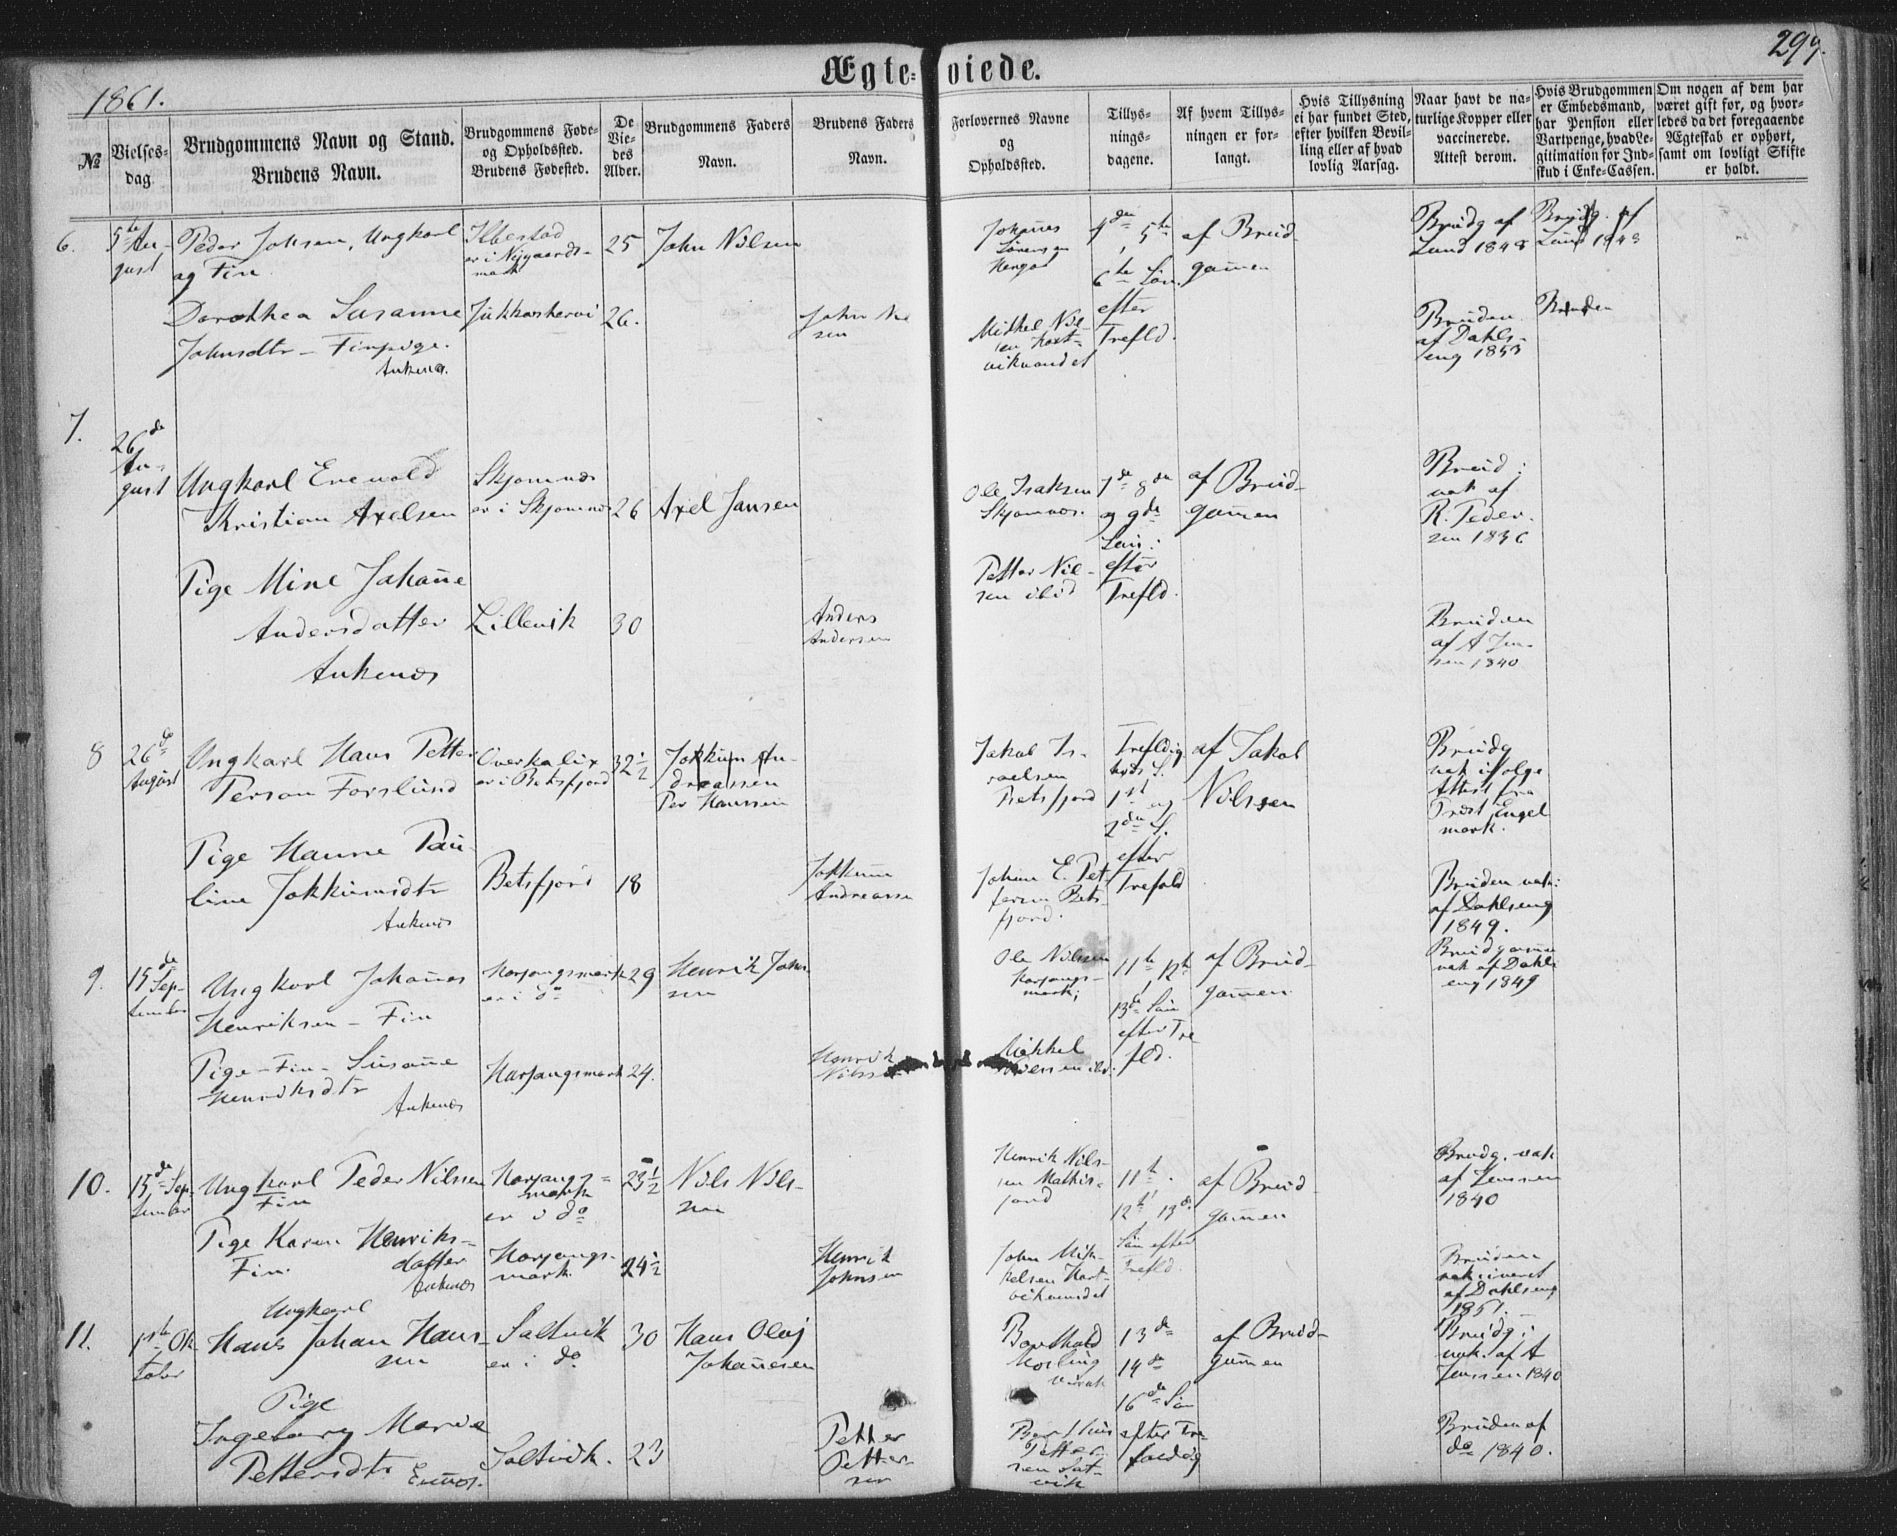 299.
Ægteviede.
1861.
№
Vielses-
dag.
Brudgommens Navn og Stand.
Brudens Navn.
Brudgommens Føde-
og Opholdssted.
Brudens Fødested.
De
Vie-
des
Alder.
Brudgommens Faders
Navn.
Brudens Faders
Navn.
Forlovernes Navne
og
Opholdssted.
Tillys-
nings-
dagene.
Af hvem Tillys-
ningen er for-
langt.
Hvis Tillysning
ei har fundet Sted,
efter hvilken Bevil-
ling eller af hvad
lovlig Aarsag.
Naar havt de na-
turlige Kopper eller
vaccinerede.
Attest derom.
Hvis Brudgommen
er Embedsmand,
har Pension eller
Vartpenge, hvad Le-
gitimation for Ind-
skud i Enke-Cassen.
Om nogen af dem har
været gift for, og hvor-
ledes da det foregaaende
Ægteskab er ophørt,
samt om lovligt Skifte
er holdt.
6.
5te Au-
gust
Peder Johsen, Ungkarl
og Fin
Ibestad
er i Nygaards-
mark
25
John Nilsen
Johanes
Sörensen
4de, 5te
6te Sön.
efter
Trefld.
af Brud
gomen
Brudg af
Lund 1848
Brudg. af
Lund 1848
Dorothea Susanne
Johnsdtr - Finpige.
Ankenæs
Jukkaskervi
26.
John Nil
sen
Mikkel Nil-
sen Hart-
vikvandet
Bruden
af Dahls-
eng 1853
Bruden
7.
26de
Au-
gust
Ungkarl Enevold
Kristian Axelsen
Skjomnæs
er i Skjomnæs
26
Axel Jansen
Ole Isaksen
Skjomnæs.
7de 8de
og 9de
Sön:
efter
Trefld.
af Brud-
gomen
Brud:
vak af
R. Peder-
sen 1836
Pige Mine Johane
Andersdatter
Ankenæs
Lillevik
30
Anders
Andersen
Petter Nil-
sen ibid
Bruden
af A Jen-
sen 1840
8
26de
August
Ungkarl Hans Petter
Person Forslund
Overkalix
er i Betsfjord
32½
Jokkum An-
dreassen
Per Hanssen
Jakob Is-
raelsen
Betsfjord
Trefldig
heds S.
1st og
2den S.
efter
Trefold
af Jakob
Nilssen
Brudg
vak ifølge
Attest fra
Prost Engel
mark.
Pige Hanne Pau-
line Jokkumsdtr
Ankenæs
Betsfjord
18
Jokkum
Andreassen
Johan E. Pet-
tersen Bets-
fjord.
Bruden vak:
af Dahlseng
1849.
9.
15de
Sep-
tember
Ungkarl Johanes
Henriksen - Fin
Harjangsmark
er i do
29
Henrik John
sen
Ole Nilssen
Harjangs-
mark;
11te, 12te
13de Sön
efter Tre
fld.
af Brud-
gomen
Brudgomen
vak af Dahls
eng 1849
Pige - Fin - Susane
Henriksdtr
Ankenæs
Harjangsmark
24.
Henrik
Nilssen
Mikkel
Nilssen ibd.
10.
15de Sep-
tember
Ungkarl Peder Nilssen
Fin
Harjangs-
mark
er i do
23½
Nils Nils-
sen
Henrik Nils-
sen Mathis-
jord
11te
12te 13de
Sön efter
Trefld.
af Brud-
gomen
Brudg. vak
af Jenssen
1840
Pige Karen Henriks-
datter
Fin.
Ankenæs
Harjangs-
mark.
24½
Henrik
Johnsen
John Mik-
kelsen Hart-
vikvandet
Bruden
vakcineret
af Dahlseng
1851.
11.
1ste Ok
tober
Ungkarl
Hans Johan Han-
sen
Saltvik
er i do
30
Hans Olaj
Johanesen
Barthold
13de
14de
16de Sön
efter Tre-
foldig
af Brud-
gomen
Brudg:
vak. af A
Jenssen 1840
Pige
Ingeborg Marie
Pettersdtr
Saltvik.
23
Petter
Petter-
sen
Petter-
sen Salt-
vik
Bruden af
do 1840.